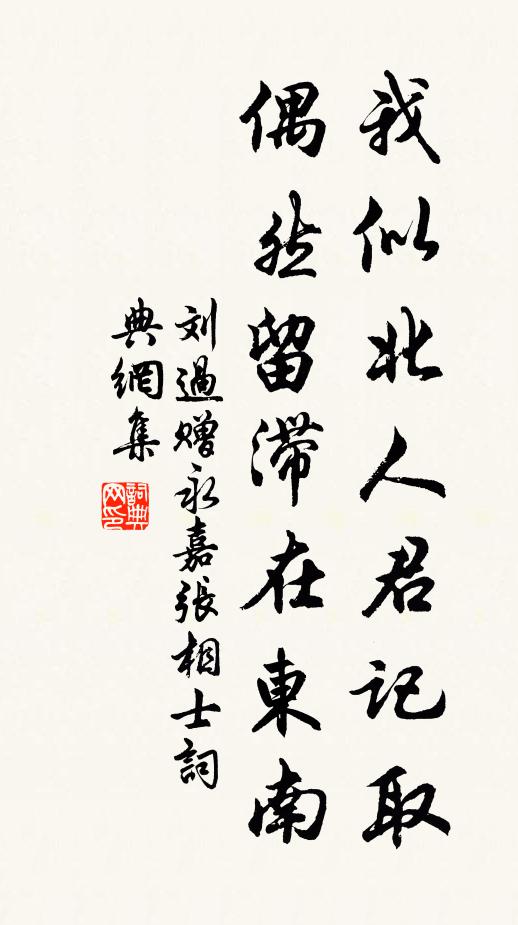 我似北人君记取
偶然留滞在東南
刘過赠永嘉張相士詞
典網集
詞典
网印